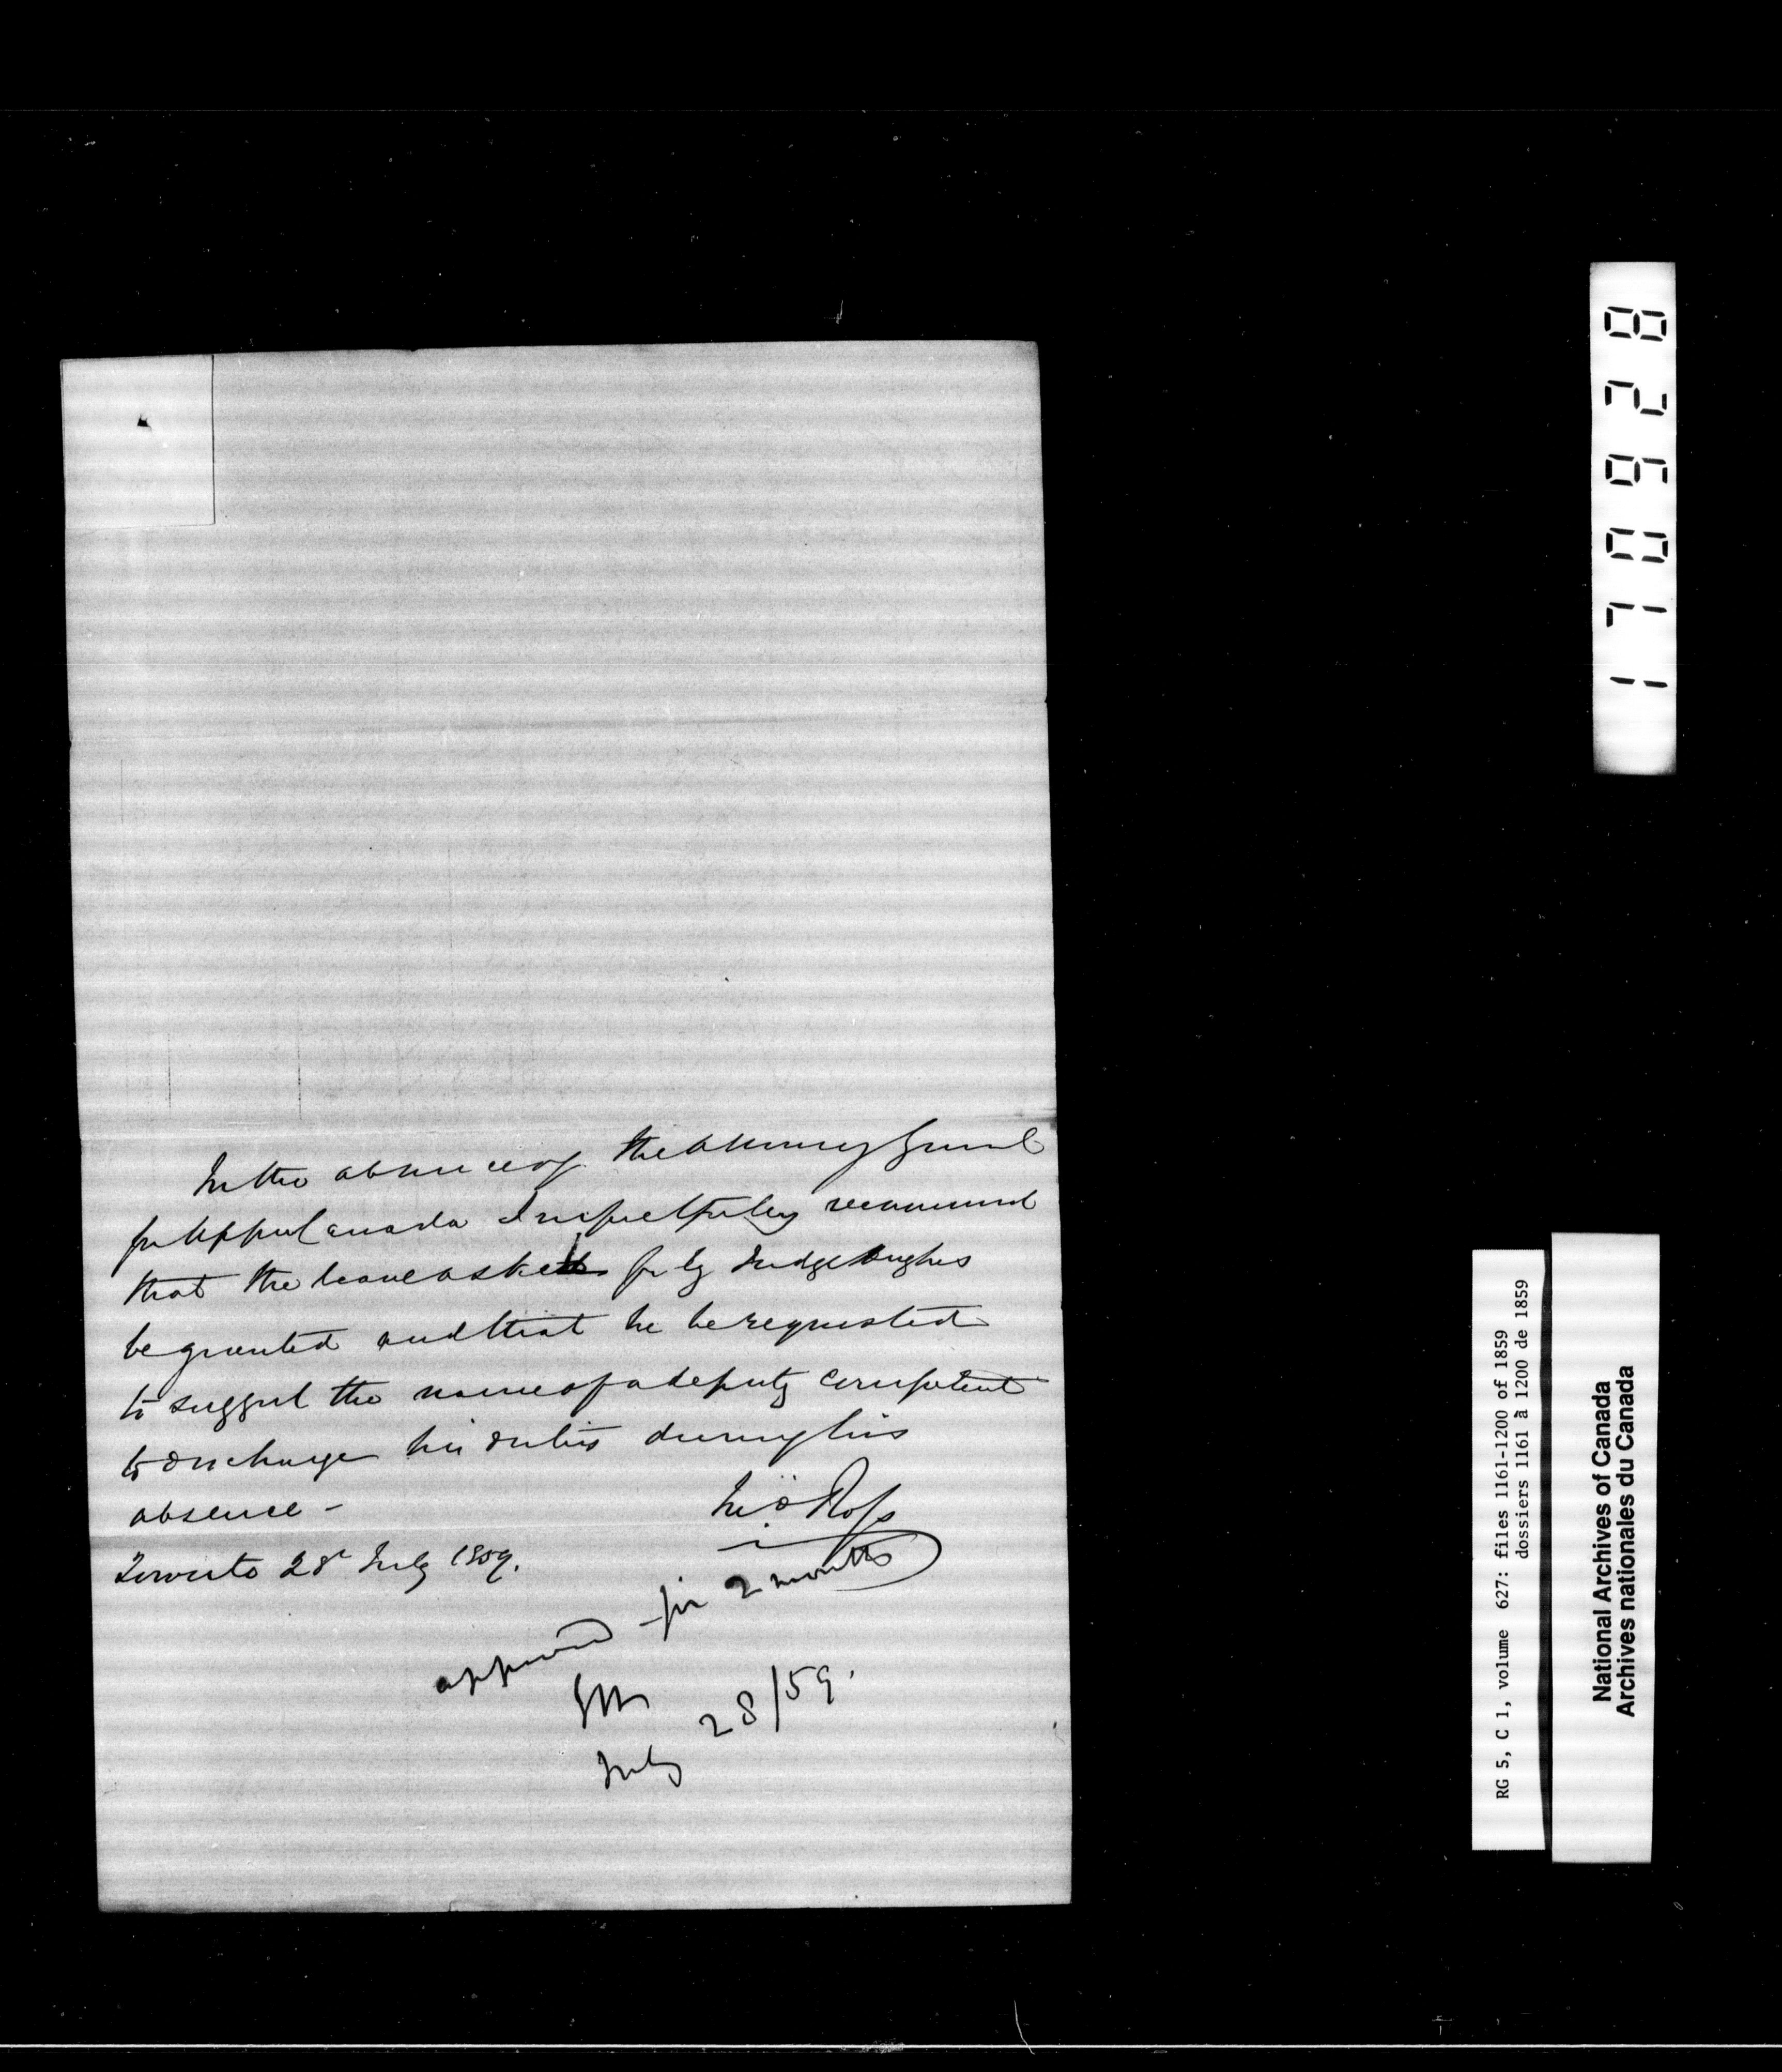 In the absence of the Attorney General
for Upper Canada I respectfully recommend
that the leave asked for by Judge Hughes
be granted and that he be requested
to suggest the name of a deputy competent
to discharge his duties during his
absence -
Jno Ross
Toronto 28 July 1859.
approved for 2 months
July 28/59.
170628
RG 5, C 1, volume 627: files 1161-1200 of 1859
dossiers 1161 à 1200 de 1859
National Archives of Canada
Archives nationales du Canada